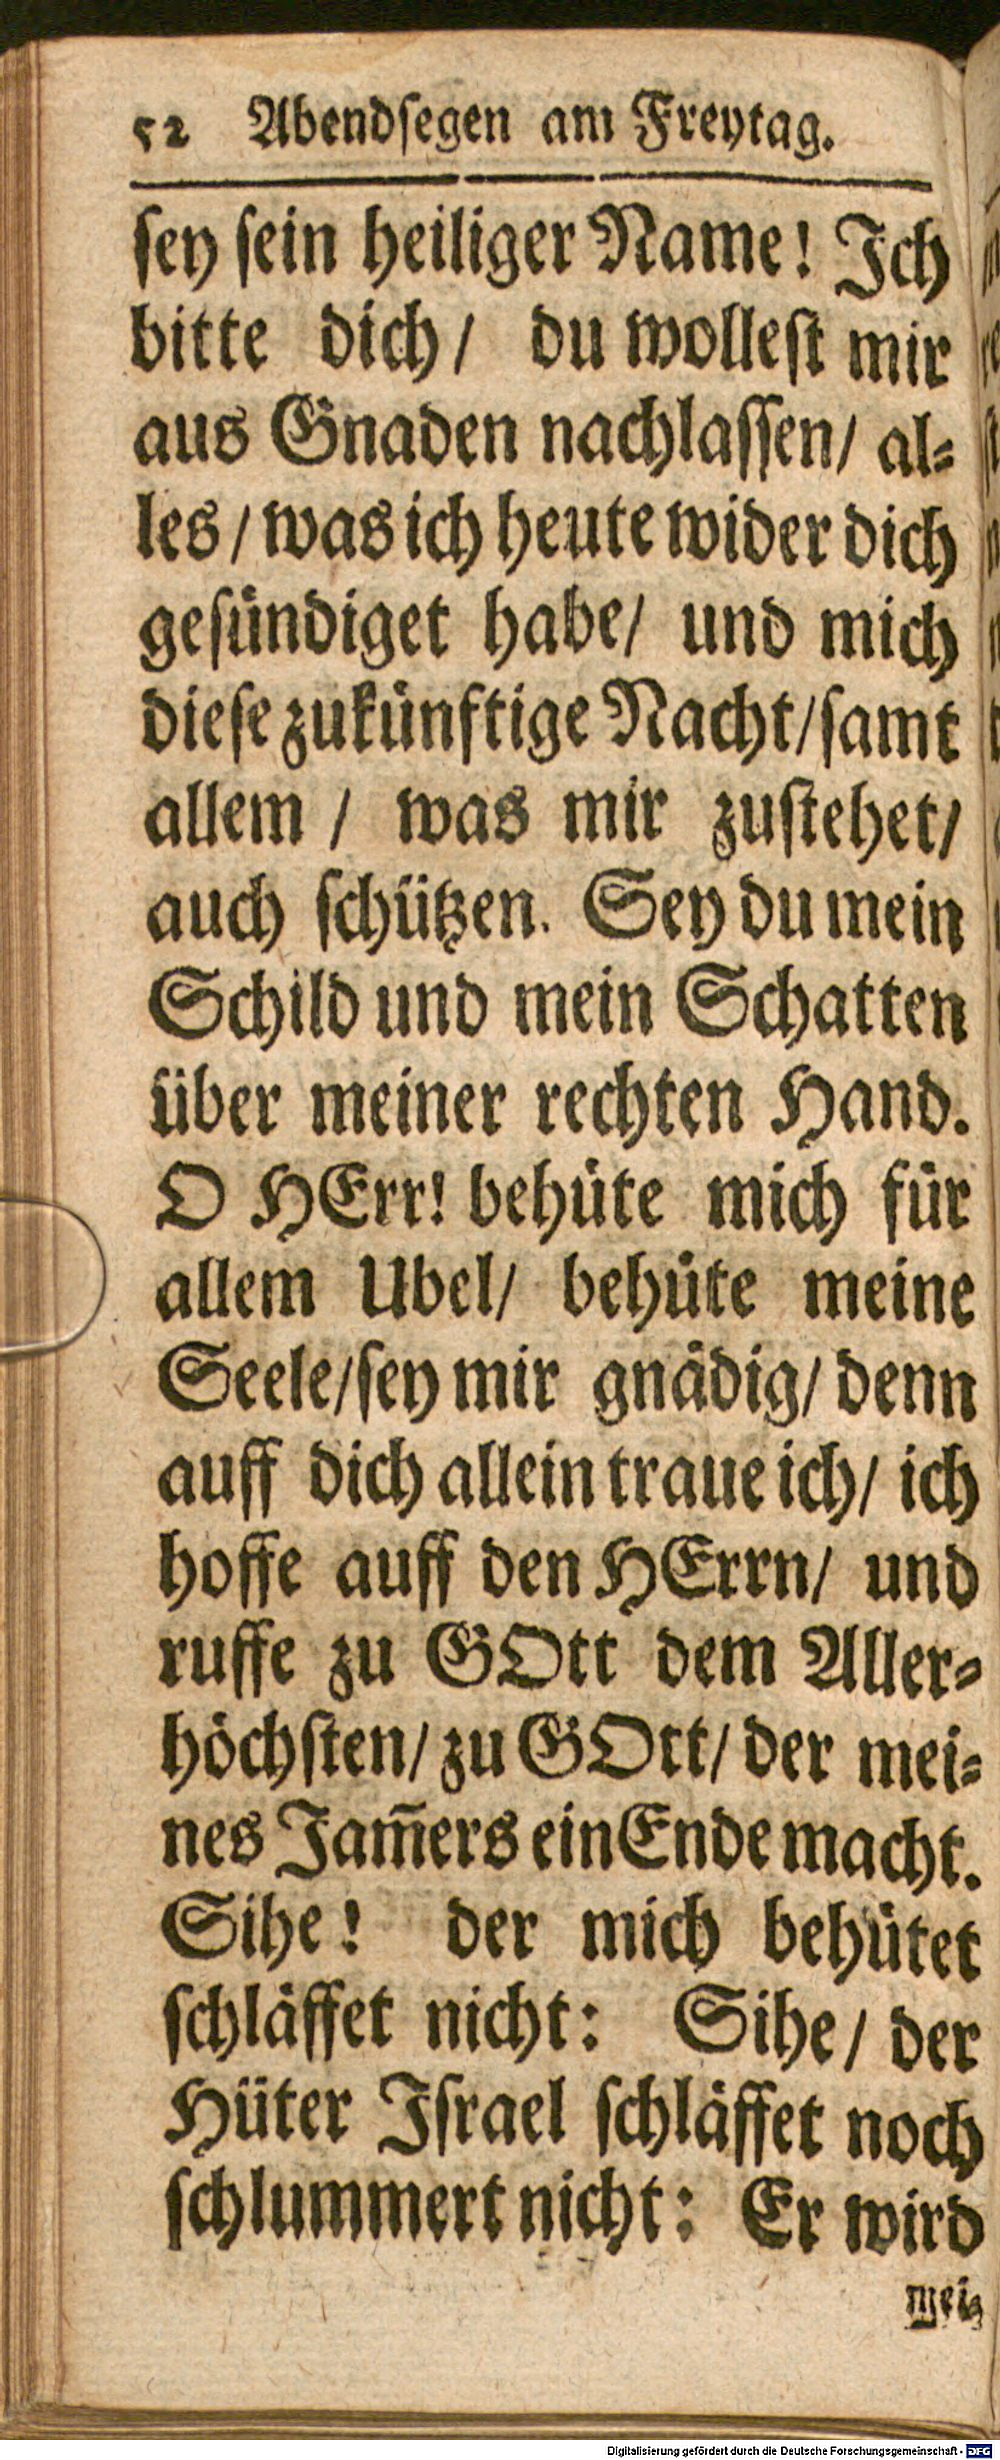 52 Abendſegen am Freytag.
ſey ſein heiliger Name! Ich
bitte dich/ du wolleſt mir
aus Gnaden nachlaſſen/ al-
les/ was ich heute wider dich
geſündiget habe/ und mich
dieſe zukünftige Nacht/ ſamt
allem / was mir zuſtehet/
auch ſchützen. Sey du mein
Schild und mein Schatten
über meiner rechten Hand.
O HErr! behüte mich für
allem Ubel/ behüte meine
Seele/ ſey mir gnädig/ denn
auff dich allein traue ich/ ich
hoffe auff den HErrn/ und
ruffe zu GOtt dem Aller-
höchſten/ zu GOtt/ der mei-
nes Jam̃ers ein Ende macht.
Sihe! der mich behütet
ſchläffet nicht: Sihe/ der
Hüter Iſrael ſchläffet noch
ſchlummert nicht: Er wird
mei-
Digitalisierung gefördert durch die Deutsche Forschungsgemeinschaft - DFG